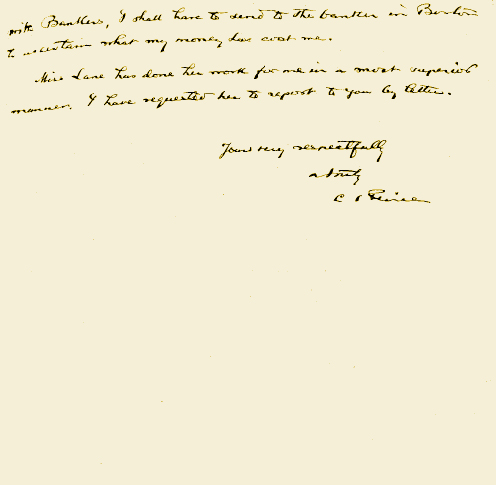 with Bankers, I shall have to send to the banker in Boston
to ascertain what my money has cost me.
Miss Lane has done her work for me in a most superior
manner. I have requested her to report to you by letter.
Yours very respectfully
& truly
C S Peirce